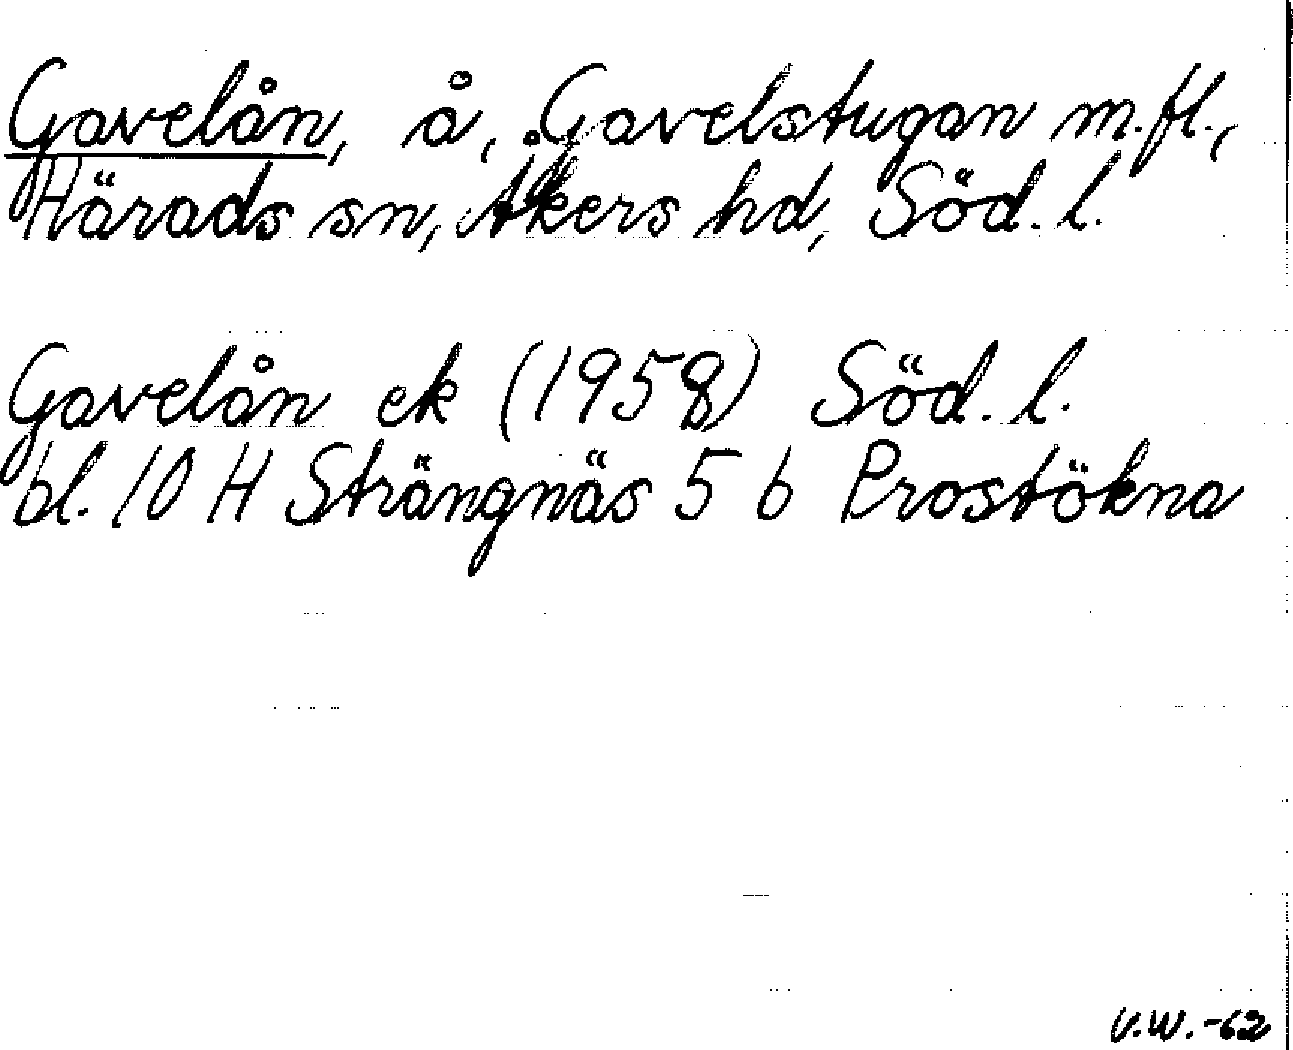 Gavelån, å, Gavelstugan m.fl.,
Härads sn, Åkers hd, Söd. l.
Gavelån ek (1958) Söd. l.
bl. 10 H Strängnäs 5 b Prostökna
V.W. -62